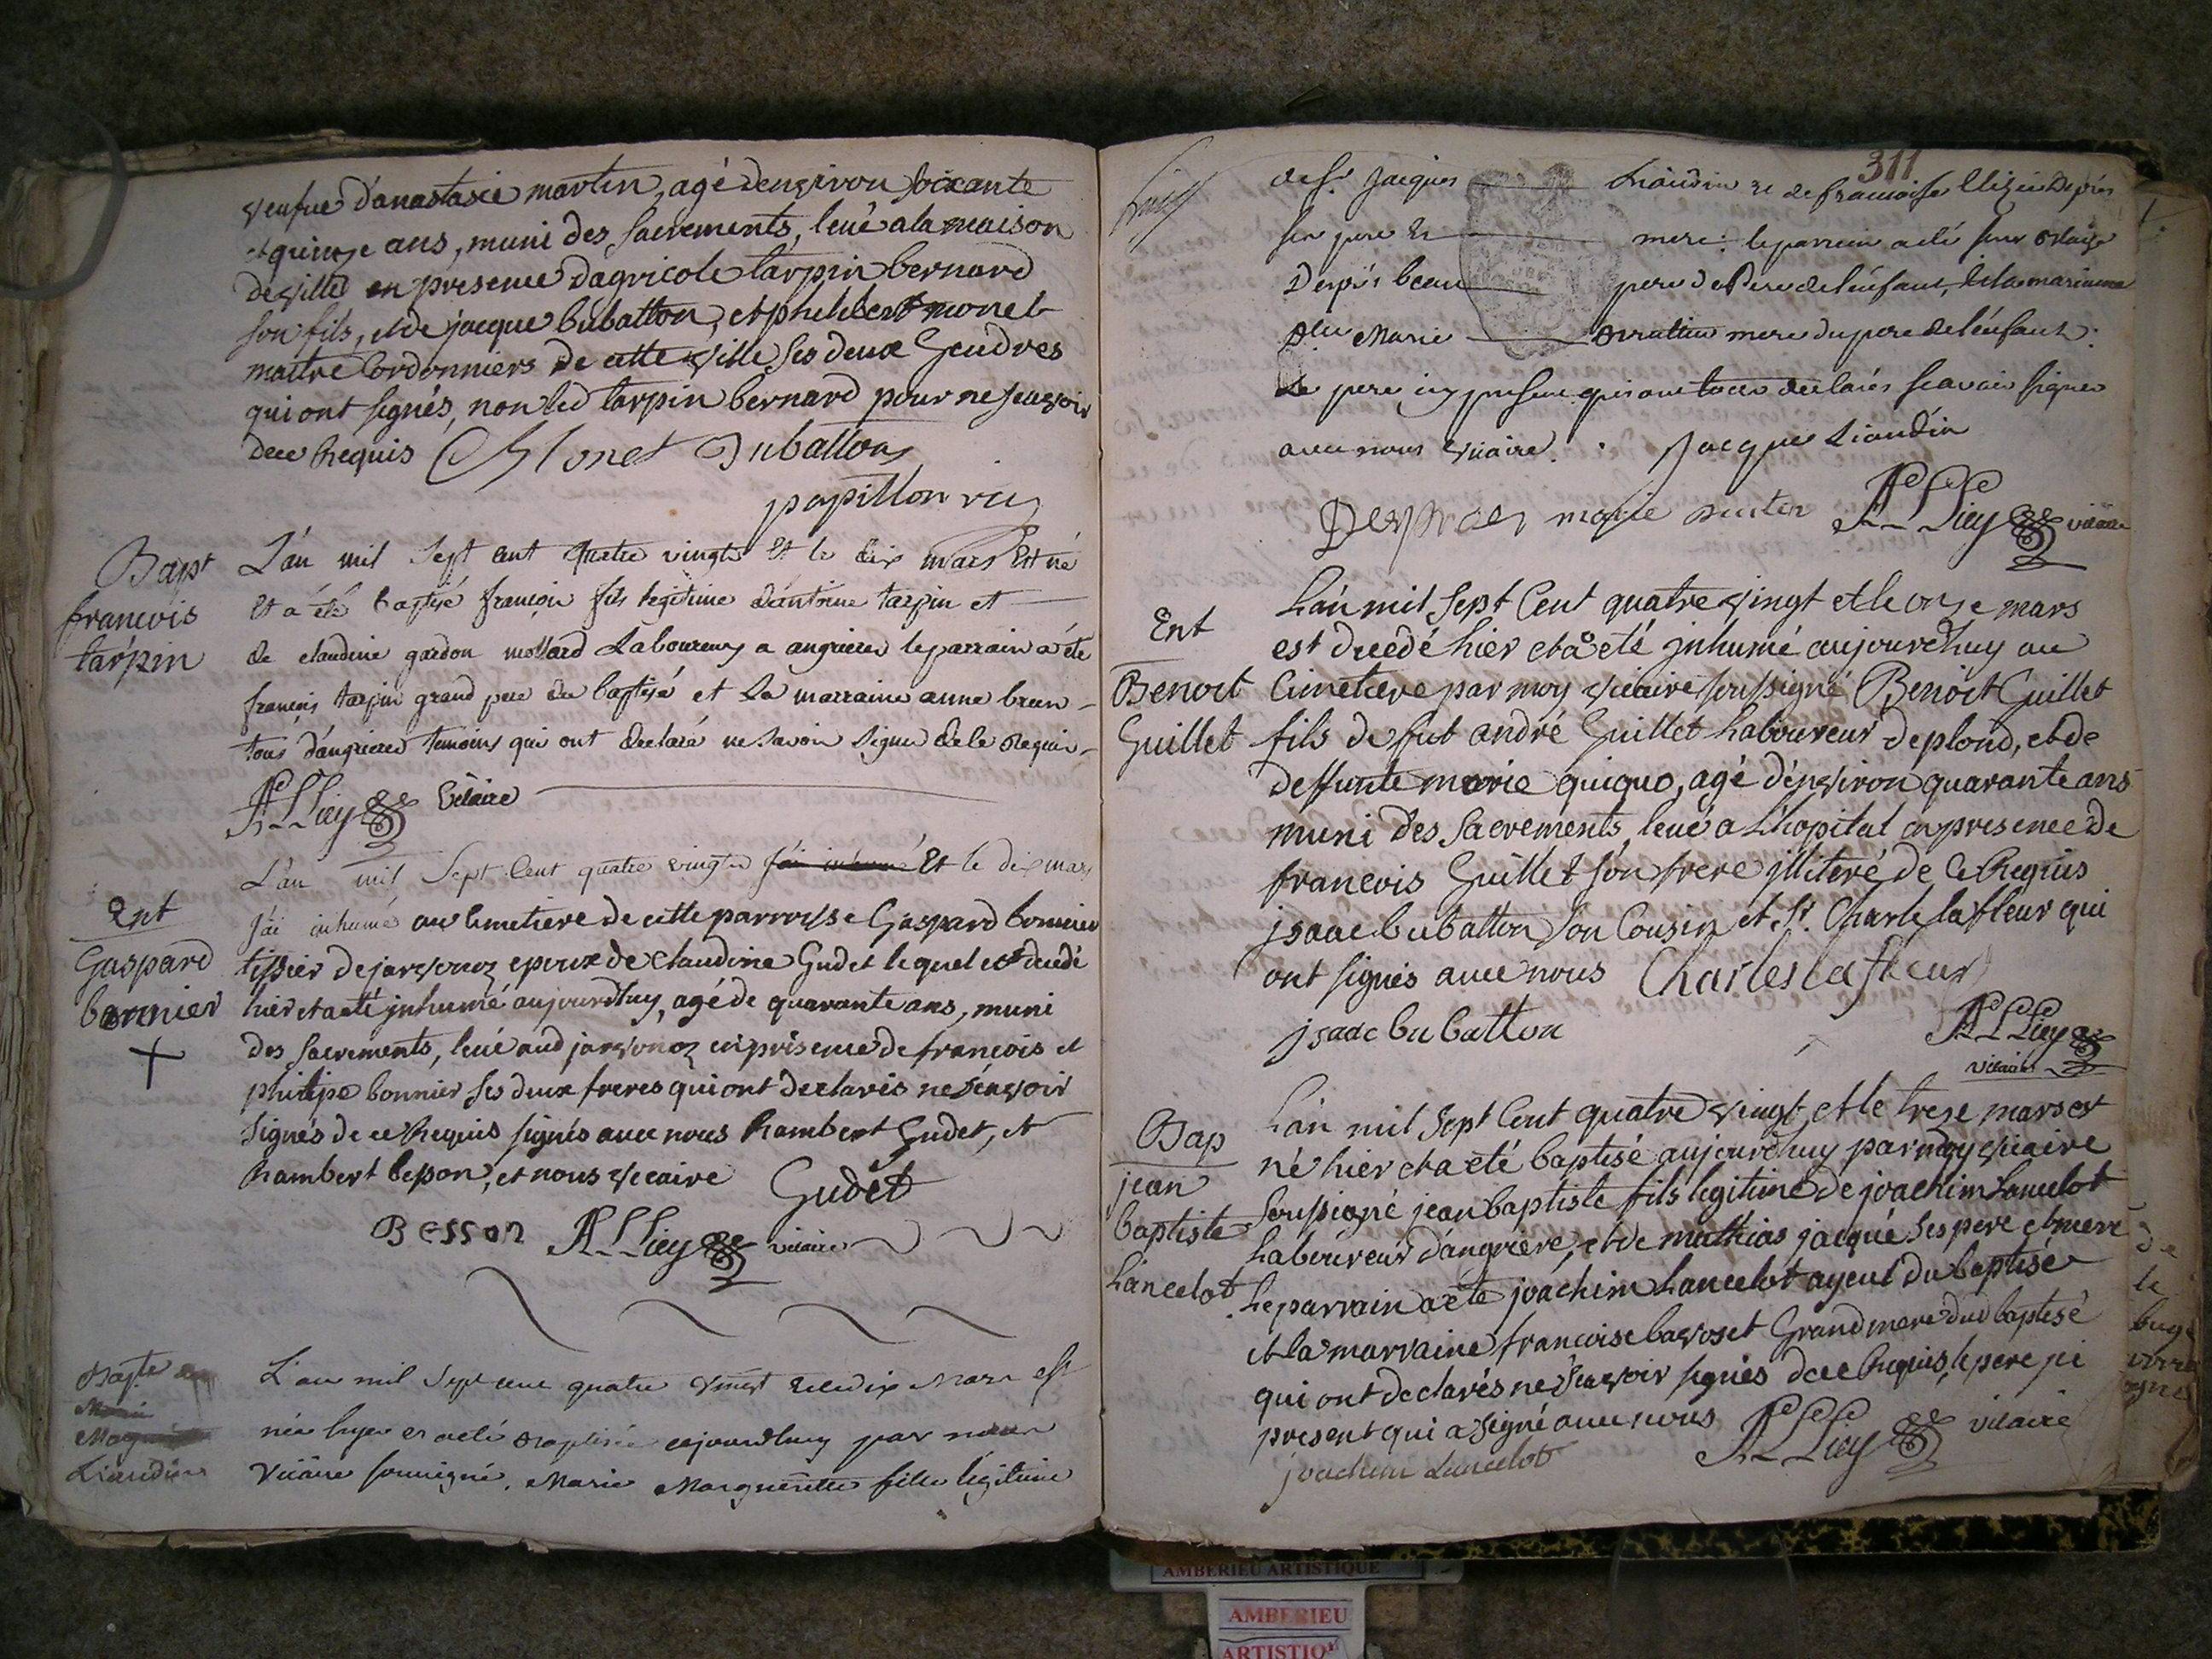 veufue d'anastasie martin, agé denviron soixante
et quinze ans, muni des sacrements, levé a la maison
de ville en presence dagricole tarpin bernard
son fils, et de jacque bubatton, et philibert monet
maitre Cordonniers de cette ville ses deux Gendres
qui ont signés, non led tarpin bernard pour ne scavoir
dece Requis Monet Bubatton
papillon vic
Bapt
francois
tarpin
L'an mil sept cent quatre vingt Et le dix mars Est né
Et a été baptisé françois fils legitime d'antoine tarpin et
de claudine gardon mollard Laboureurs a angrieres le parrain a été
françois tarpin grand pere du baptisé et La marraine anne brun
tous d'angrieres temoins qui ont declaré ne savoir signer de le Requis
vicaire
Ent
Gaspard
bonnier
L'an mil Sept Cent quatre vingt j'ai inhumé Et le dix mars
J'ai inhumé au Cimetiere de cette parroisse Gaspard bonnier
tissier de jarvonoz epoux de Claudine Gudet lequel est decedé
hier et a eté inhumé aujourdhuy, agé de quarante ans, muni
des sacrements, levé aud jarvonoz en presence de francois et
philipe bonnier ses deux freres qui ont declarés ne scavoir
signés de ce Requis signés avec nous Rambert Gudet, et
Rambert besson, et nous vicaire Gudet
Besson vicaire
Bapte
Liaudin
L'an mil sept cent quatre vingt et le dix Mars est
née hyer et a eté Baptisée aujourdhuy par nous
Vicaire soussigné, Marie Margueritte fille légitime
311
de sr. Jacques Liaudin et de francoise
son pere et mere: le parrein a eté sieur
Desprès beau pere de Pere de lénfant, et la maraine
Marie mere du pere de lénfant.
Le pere icy present qui ont tous declarés scavoir signer
avec nous vicaire. Jacque Liaudin
Despraes marie vicaire
Ent
Benoit
Guillet
L'an mil sept Cent quatre vingt et le onze mars
est decedé hier et a eté inhumé aujourdhuy au
Cimetiere par moy vicaire soussigné Benoit Guillet
fils de fut andré Guillet Laboureur de plond, et de
deffunte marie quiquo, agé dénviron quarante ans
muni des sacrements, levé a L'hopital en presence de
francois Guillet son frere illiteré de Ce Requis
isaac bubatton son Cousin et Sr. Charle lafleur qui
ont signés avec nous Charles lafleur
isaac bubatton
vicaire
Bap
jean
baptiste
Lancelot
L'an mil sept Cent quatre vingt, et le treze mars est
né hier et a eté baptisé aujourdhuy par moy vicaire
soussigné jean baptiste fils legitime de joachim Lancelot
Laboureur d'angriere, et de mathias jacqué ses pere et mere
Le parrain a eté joachim Lancelot ayeul du baptisé
et la marraine francoise bavoset Grand mere dud baptisé
qui ont declarés ne scavoir signés de ce Requis, le pere ici
present qui a signé avec nous vicaire
joachim Lancelot
AMBERIEU ARTISTIQUE
AMBERIEU